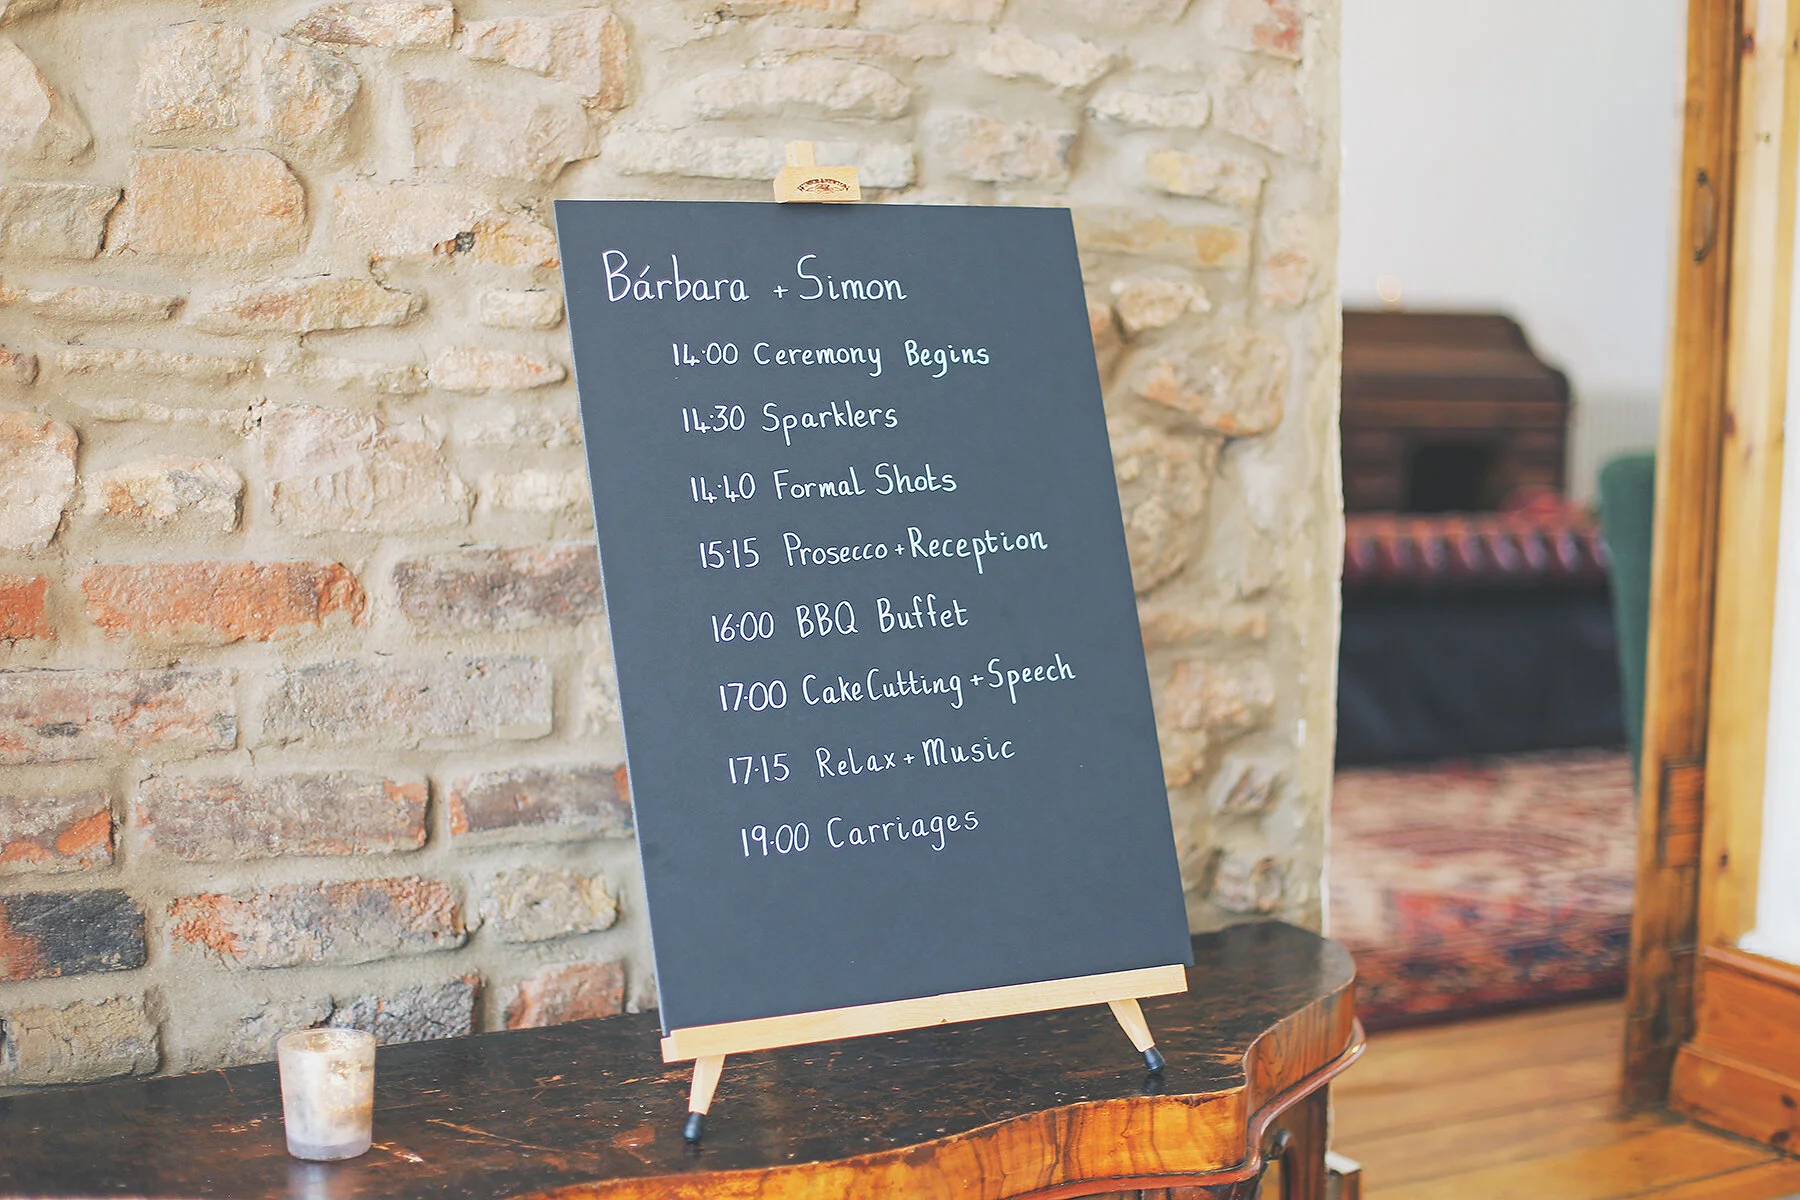 Bárbara + Simon
14:00 Ceremony Begins
14:30 Sparklers
14:40 Formal Shots
15:15 Prosecco + Reception
16:00 BBQ Buffet
17:00 Cake Cutting + Speech
17:15 Relax + Music
19:00 Carriages